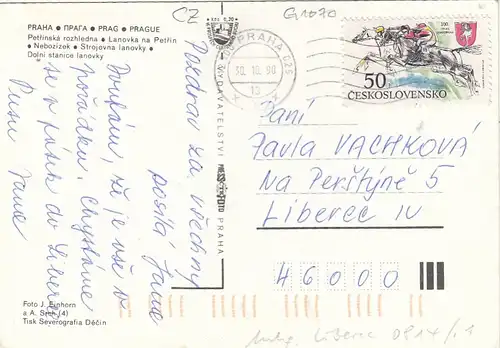 PRAHA • ПРАГА • PRAG • PRAGUE
Petřínská rozhledna • Lanovka na Petřín
• Nebozízek • Strojovna lanovky •
Dolní stanice lanovky
CZ
G1070
Pozdrav za všechny
posílá Jana
Doufám, že je vše v
pořádku. Chystáme
se v pátek do Liberce
Pusu Jana
VYDAVATELSTVÍ PRESSFOTO PRAHA
PRAHA
30.10.90
13
50
ČESKOSLOVENSKO
Paní
Pavla VACHKOVÁ
Na Perštýně 5
Liberec IV
46000
Foto J. Einhorn
a A. Srch (4)
Tisk Severografia Děčín
Liberec